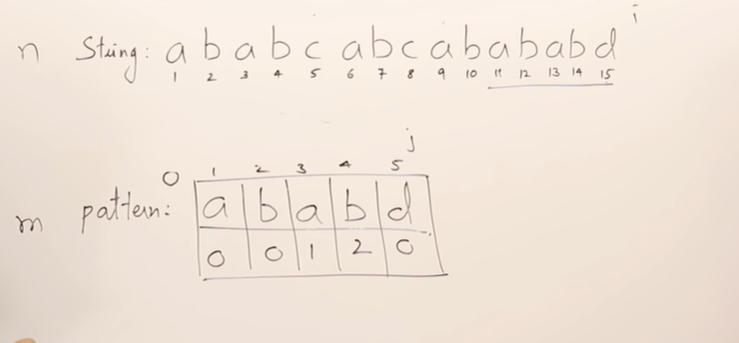 i
n String: a b a b c a b c a b a b a b d
1 2 3 4 5 6 7 8 9 10 11 12 13 14 15
j
0 1 2 3 4 5
m pattern: a b a b d
0 0 1 2 0